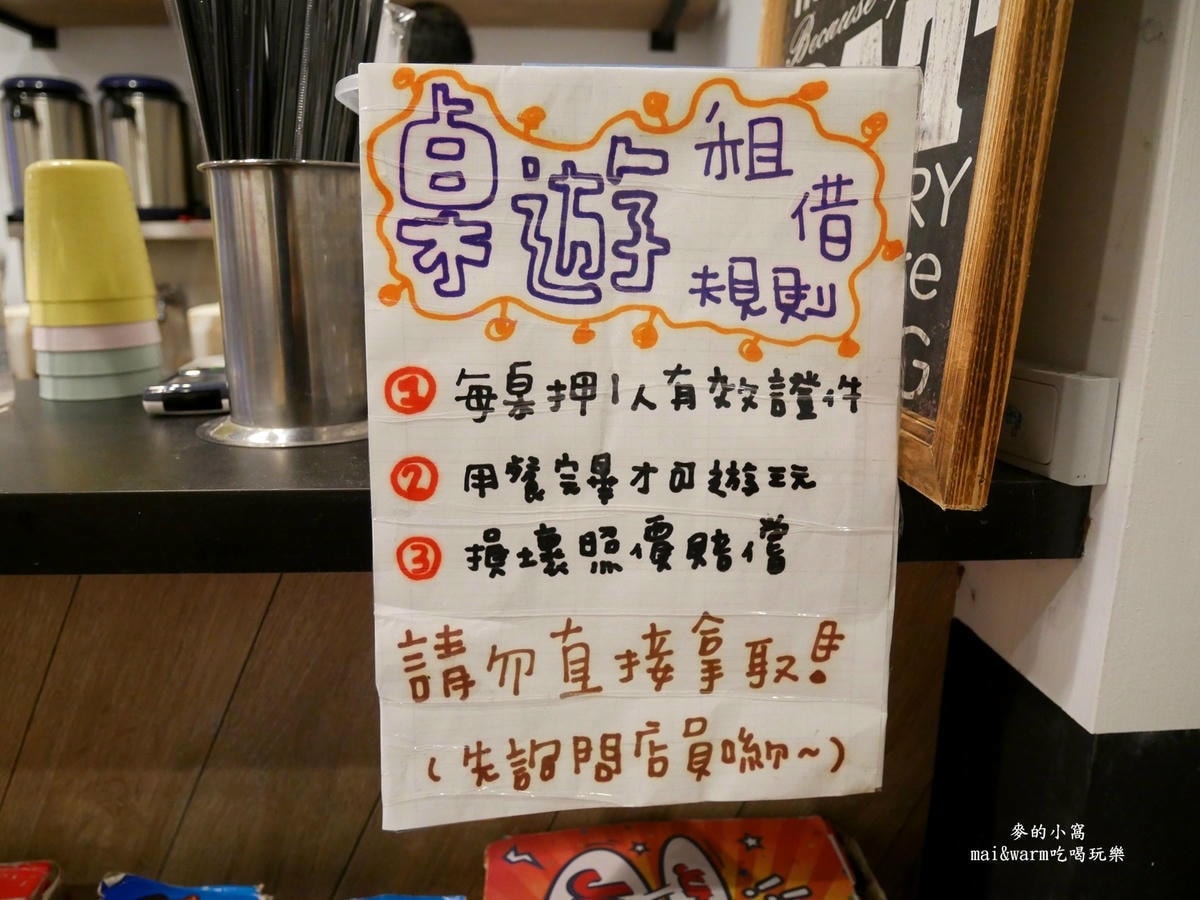 桌遊租借規則
① 每桌押1人有效證件
② 用餐完畢才可遊玩
③ 損壞照價賠償
請勿直接拿取!!
(先詢問店員喲~)
Because
RY
re
G
麥的小窩
mai&warm吃喝玩樂